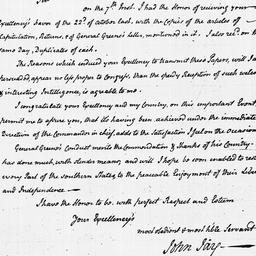 Sir
on the 7th Inst. I had the Honor of receiving your
Excellency's Favor of the 22d of October last, with the Copies of the articles of
Capitulation, Returns, & of General Greene's letter, mentioned in it. I also recd. on the
same Day, Duplicates of each.
The Reasons which induced your Excellency to transmit these Papers, will I am
persuaded, appear no less proper to Congress, than the speedy Reception of such welcome
& interesting Intelligence, is agreable to me.
I congratulate your Excellency and my Country, on this important Event,
permit me to assure you, that its having been atchieved under the immediate
Direction of the Commander in chief, adds to the Satisfaction I feel on the Occasion
General Greene's Conduct merits the Commendation & Thanks of his Country—
has done much, with slender means; and will I hope be soon enabled to rest
every Part of the southern States to the peaceable Enjoyment of their Liber
and Independence—
I have the Honor to be, with perfect Respect and Esteem
Your Excellency's
most obedient & most hble Servant
John Jay—